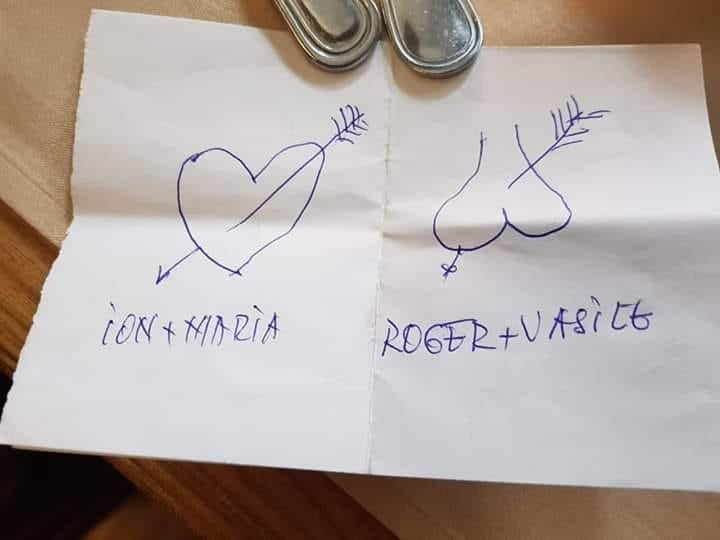 iON + MARiA
ROGER + VASiLE